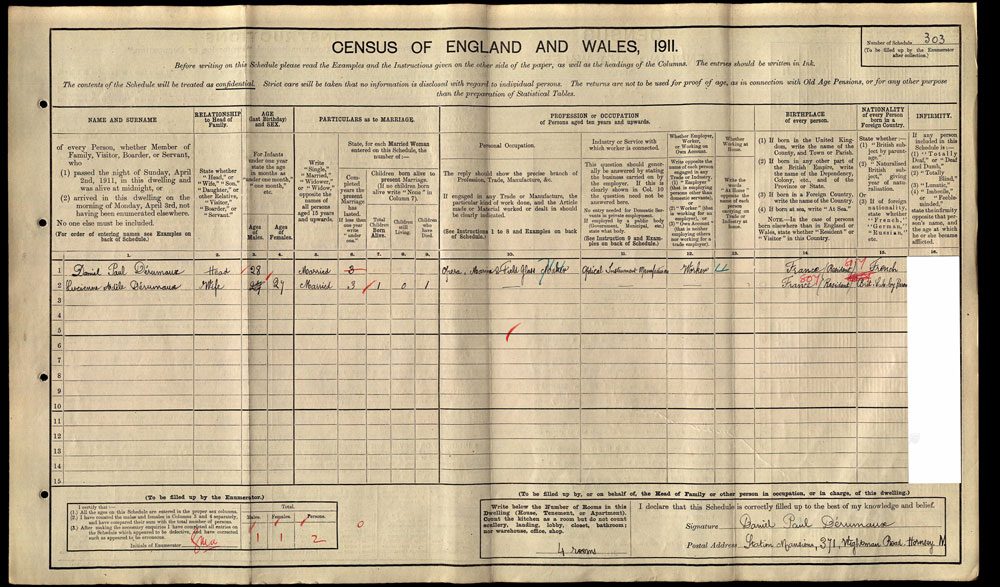 Number of Schedule 303
(To be filled up by the Enumerator after collection.)
CENSUS OF ENGLAND AND WALES, 1911.
Before writing on this Schedule please read the Examples and the Instructions given on the other side of the paper, as well as the headings of the Columns. The entries should be written in Ink.
The contents of the Schedule will be treated as confidential. Strict care will be taken that no information is disclosed with regard to individual persons. The returns are not to be used for proof of age, as in connection with Old Age Pensions, or for any other purpose
than the preparation of Statistical Tables.
NAME AND SURNAME
of every Person, whether Member of Family, Visitor, Boarder, or Servant, who
(1) passed the night of Sunday, April 2nd, 1911, in this dwelling and was alive at midnight, or
(2) arrived in this dwelling on the morning of Monday, April 3rd, not having been enumerated elsewhere.
No one else must be included.
(For order of entering names see Examples on back of Schedule.)
RELATIONSHIP to Head of Family.
State whether "Head," or "Wife," "Son," "Daughter," or other Relative, "Visitor," "Boarder," or "Servant."
AGE (last Birthday) and SEX.
For Infants under one year state the age in months as "under one month," "one month," etc.
Ages of Males.
Ages of Females.
PARTICULARS as to MARRIAGE.
Write "Single," "Married," "Widower," or "Widow," opposite the names of all persons aged 15 years and upwards.
State, for each Married Woman entered on this Schedule, the number of:—
Completed years the present Marriage has lasted. If less than one year write "under one."
Children born alive to present Marriage. (If no children born alive write "None" in Column 7).
Total Children Born Alive.
Children still Living.
Children who have Died.
PROFESSION or OCCUPATION
of Persons aged ten years and upwards.
Personal Occupation.
The reply should show the precise branch of Profession, Trade, Manufacture, &c.
If engaged in any Trade or Manufacture, the particular kind of work done, and the Article made or Material worked or dealt in should be clearly indicated.
(See Instructions 1 to 8 and Examples on back of Schedule.)
Industry or Service with which worker is connected.
This question should generally be answered by stating the business carried on by the employer. If this is clearly shown in Col. 10 the question need not be answered here.
No entry needed for Domestic Servants in private employment. If employed by a public body (Government, Municipal, etc.) state what body.
(See Instruction 9 and Examples on back of Schedule.)
Whether Employer, Worker, or Working on Own Account.
Write opposite the name of each person engaged in any Trade or Industry,
(1) "Employer" (that is employing persons other than domestic servants),
(2) "Worker" (that is working for an employer), or
(3) "Own Account" (that is neither employing others nor working for a trade employer).
Whether Working at Home.
Write the words "At Home" opposite the name of each person carrying on Trade or Industry at home.
BIRTHPLACE of every person.
(1) If born in the United Kingdom, write the name of the County, and Town or Parish.
(2) If born in any other part of the British Empire, write the name of the Dependency, Colony, etc., and of the Province or State.
(3) If born in a Foreign Country, write the name of the Country.
(4) If born at sea, write "At Sea."
NOTE.—In the case of persons born elsewhere than in England or Wales, state whether "Resident" or "Visitor" in this Country.
NATIONALITY of every Person born in a Foreign Country.
State whether:—
(1) "British subject by parentage."
(2) "Naturalised British subject," giving year of naturalisation.
Or
(3) If of foreign nationality, state whether "French," "German," "Russian," etc.
INFIRMITY.
If any person included in this Schedule is:—
(1) "Totally Deaf," or "Deaf and Dumb,"
(2) "Totally Blind,"
(3) "Lunatic,"
(4) "Imbecile," or "Feeble-minded,"
state the infirmity opposite that person's name, and the age at which he or she became afflicted.
1. 2. 3. 4. 5. 6. 7. 8. 9. 10. 11. 12. 13. 14. 15. 16.
1 Daniel Paul Dérumaux Head 28 Married 3 Opera, Marine & Field Glass Optical Instrument Worker France Resident French
2 Lucienne Adèle Dérumaux Wife 27 Married 3 1 0 1 — — — France Resident
3
4
5
6
7
8
9
10
11
12
13
14
15
(To be filled up by the Enumerator.)
I certify that:—
(1.) All the ages on this Schedule are entered in the proper sex columns.
(2.) I have counted the males and females in Columns 3 and 4 separately, and have compared their sum with the total number of persons.
(3.) After making the necessary enquiries I have completed all entries on the Schedule which appeared to be defective, and have corrected such as appeared to be erroneous.
Initials of Enumerator
Total
Males. Females. Persons.
1 1 2
0
(To be filled up by, or on behalf of, the Head of Family or other person in occupation, or in charge, of this dwelling.)
Write below the Number of Rooms in this Dwelling (House, Tenement, or Apartment). Count the kitchen as a room but do not count scullery, landing, lobby, closet, bathroom; nor warehouse, office, shop.
4 rooms
I declare that this Schedule is correctly filled up to the best of my knowledge and belief.
Signature Daniel Paul Dérumaux
Postal Address Station Mansions, 371, Road Hornsey N